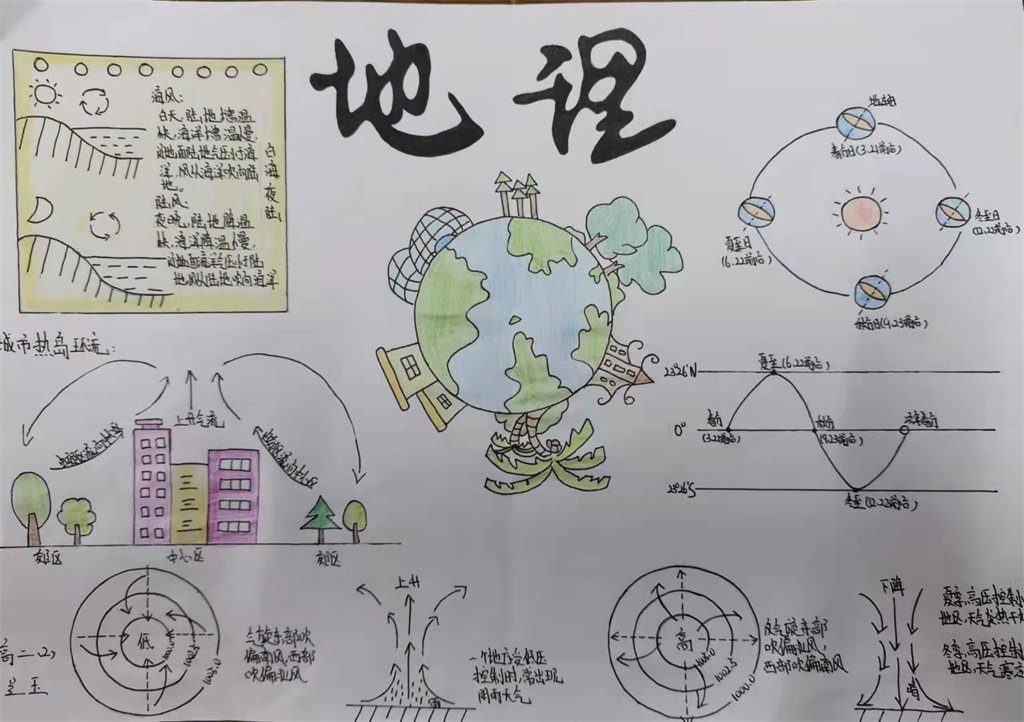 地理
海风:
白天,陆地增温
快,海洋增温慢,
近地面陆地气压小于海
洋,风从海洋吹向陆
地。
陆风:
夜晚,陆地降温
快,海洋降温慢,
近地面海洋气压小于陆
地,风从陆地吹向海洋
白海夜陆
地轴
春分日(3.21前后)
夏至日
(6.22前后)
冬至日
(12.22前后)
秋分日(9.23前后)
城市热岛环流:
上升气流
郊区
中心区
郊区
23°26'N
夏至(6.22前后)
0°
春分
(3.21前后)
秋分
(9.23前后)
次年春分
23°26'S
冬至(12.22前后)
低
1002.5
1005.0
气旋东部吹
偏南风,西部
吹偏北风
高二(2)
上升
雨
一个地方受低压
控制时,常出现
阴雨天气
高
1005.0
1002.5
1000.0
反气旋东部
吹偏北风,
西部吹偏南风
下降
晴
夏季,高压控制
地区,天气炎热干
冬季,高压控制
地区,天气寒